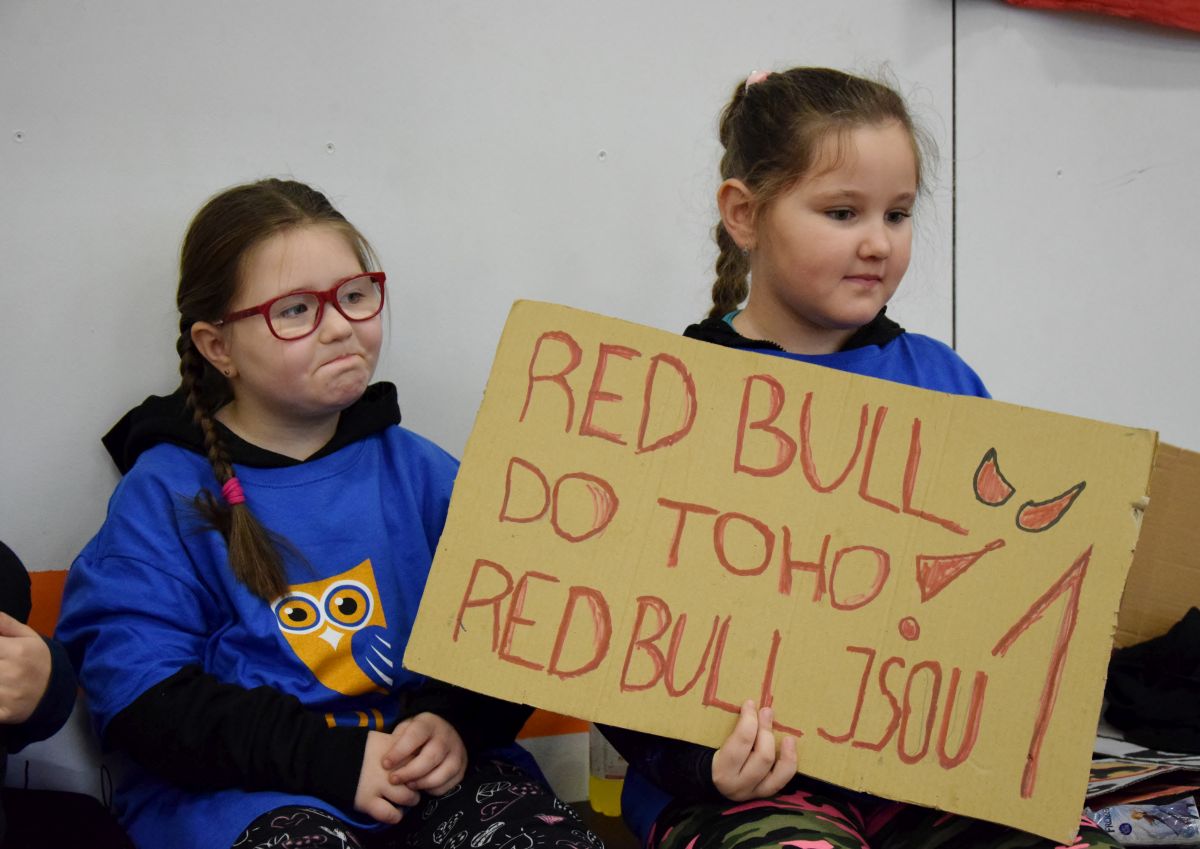 RED BULL
DO TOHO!
RED BULL JSOU 1